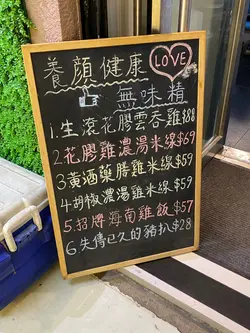 養顏健康 LOVE
無味精
1.生滾花膠雲吞雞$88
2.花膠雞濃湯米線$69
3.黃酒藥膳雞米線$59
4.胡椒濃湯雞米線$59
5.招牌海南雞飯$57
6.失傳已久的豬扒$28